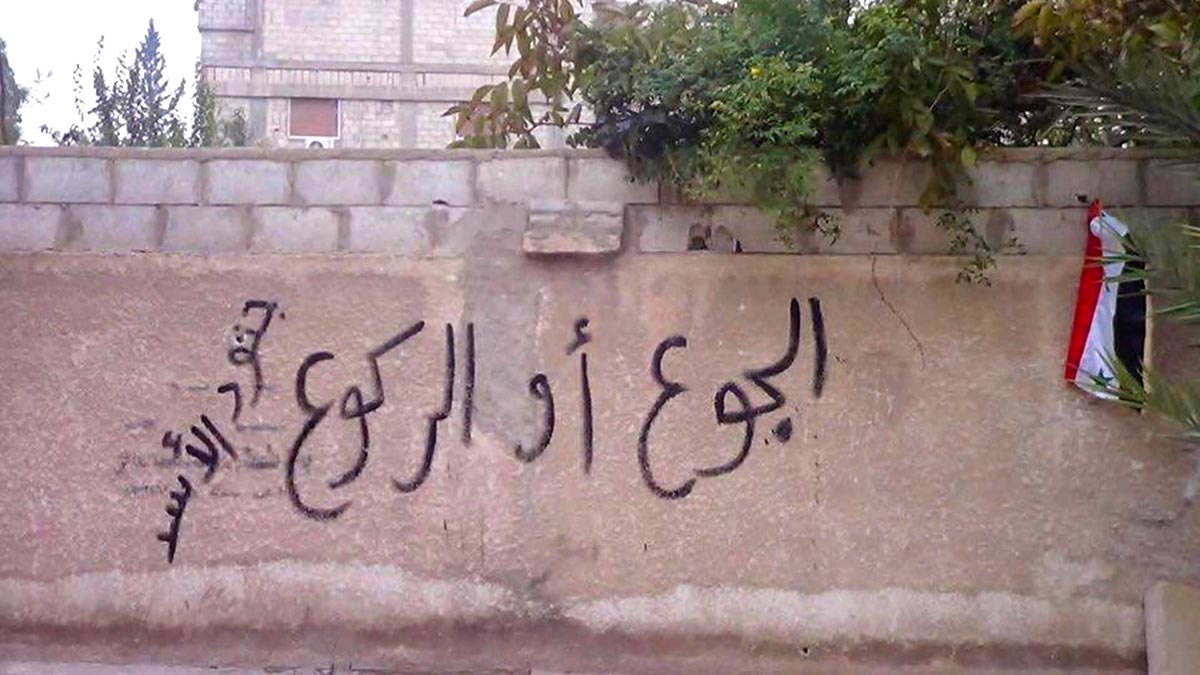 الجوع أو الركوع
جنود الأسد